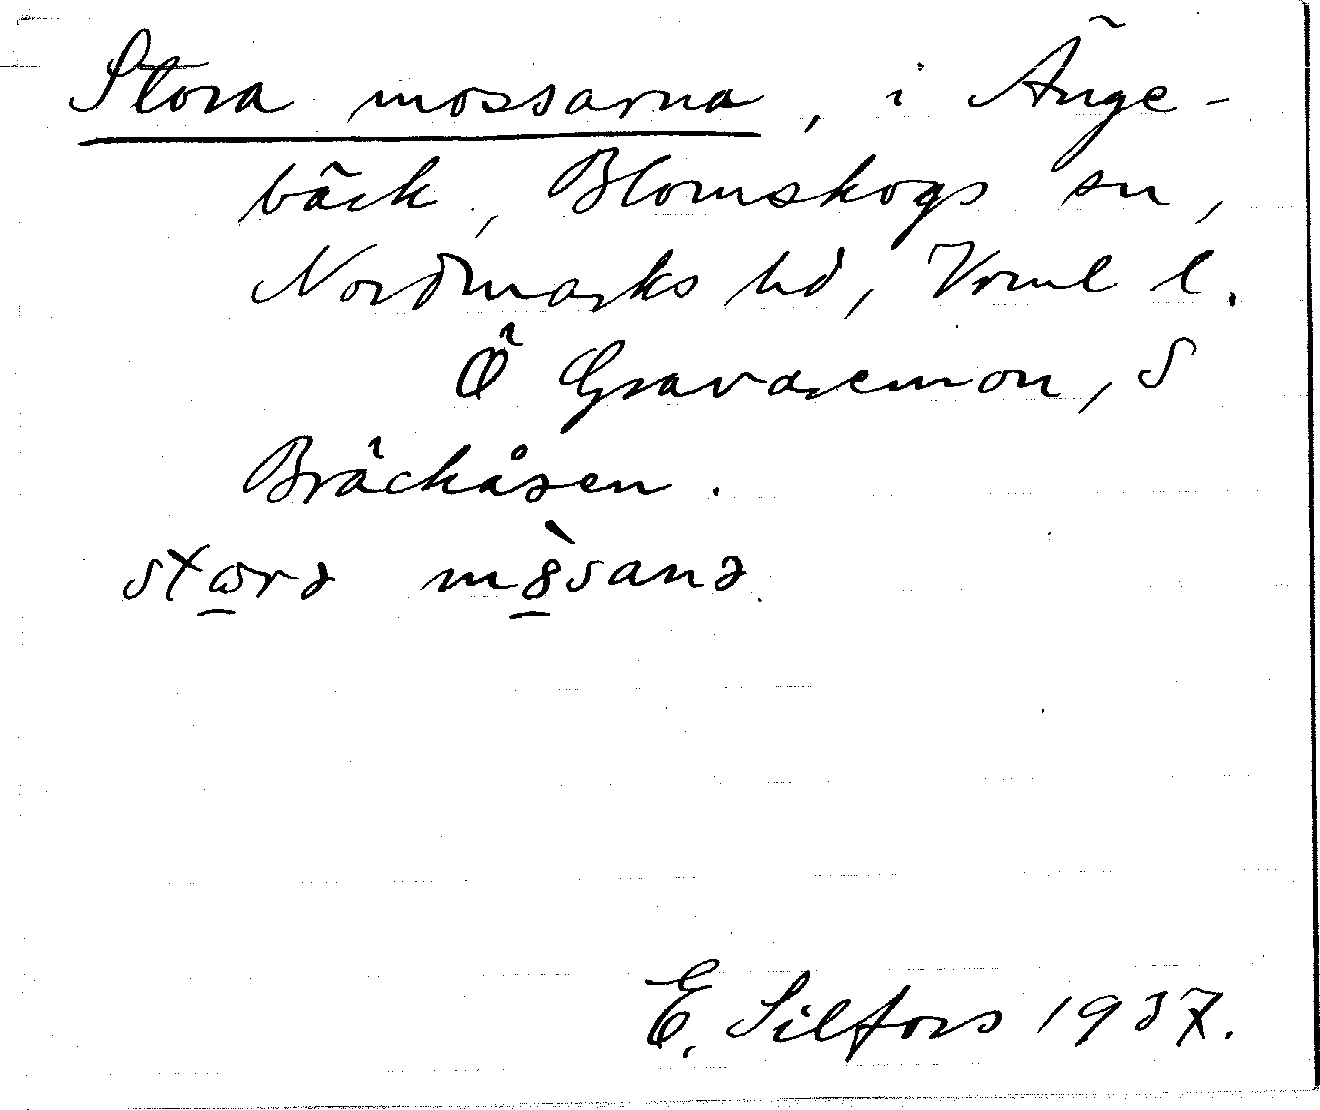 Stora mossarna, i Änge-
bäck, Blomskogs sn,
Nordmarks hd, Vrml l.
Ö Gravaremon, S
Bräckåsen.
stɷrə m8̀sanə.
E. Silfors 1937.